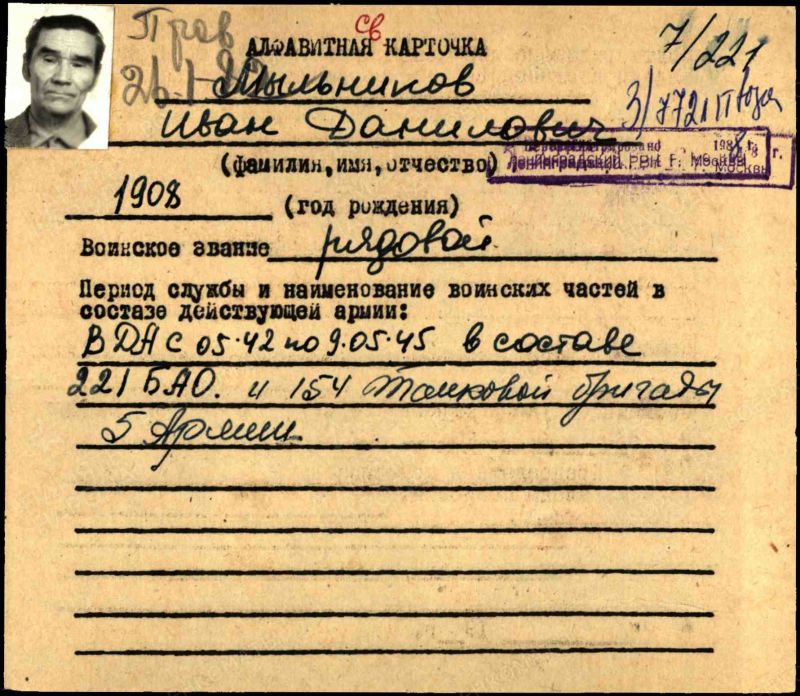 св
Прав
АЛФАВИТНАЯ КАРТОЧКА
7/221
26.1
Мыльников
3/772
Иван Данилович
198 г.
Ленинградский РВК г. Москвы
г.
(фамилия, имя, отчество)
1908
(год рождения)
Воинское звание рядовой
Период службы и наименование воинских частей в
составе действующей армии:
В ДА с 05.42 по 9.05.45 в составе
221 БАО. и 154 Танковой бригады
5 Армии